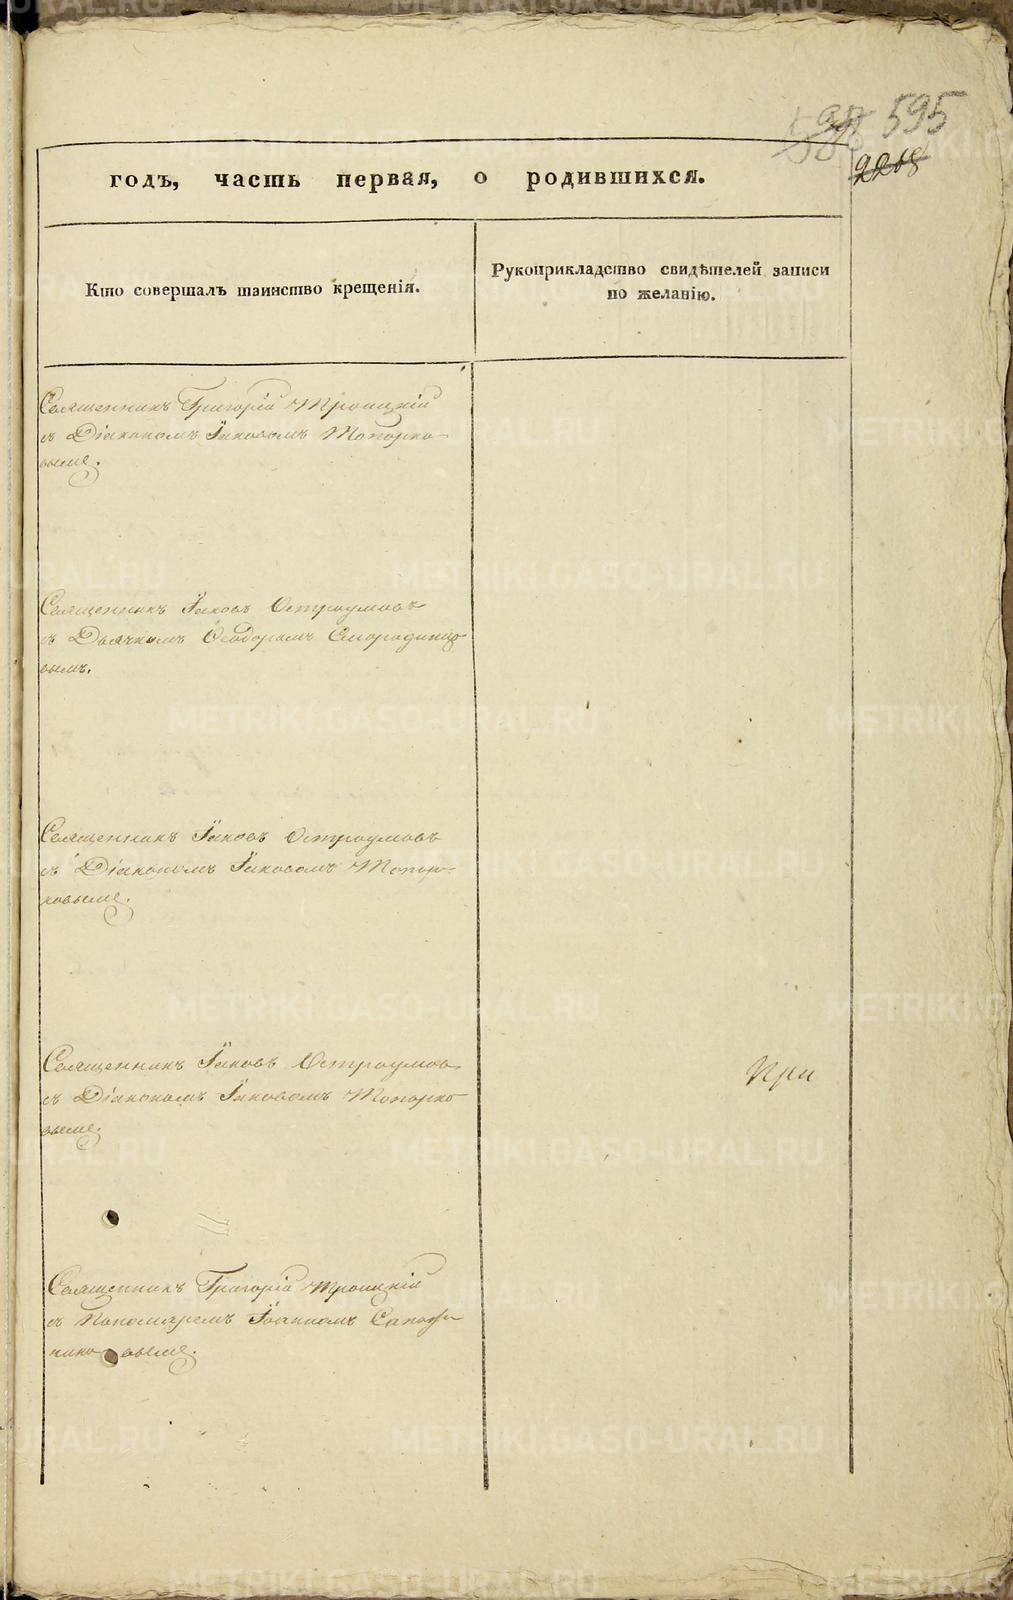 595
2268
годъ, часть первая, о родившихся.
Кто совершалъ таинство крещенія.
Рукоприкладство свидѣтелей записи
по желанію.
Священникъ Григорій Троицкій
съ Діакономъ Іаковомъ Топорко-
вымъ.
Священникъ Іаковъ Остроумовъ
съ Дьячкомъ Ѳеодоромъ Смородинцо
вымъ.
Священникъ Іаковъ Остроумовъ
съ Діакономъ Іаковомъ Топор-
ковымъ.
Священникъ Іаковъ Остроумов
съ Діакономъ Іаковомъ Топорко
вымъ.
При
Священникъ Григорій Троицкій
съ Пономаремъ Іоанномъ Сапож
никовымъ.
METRIKI.GASO-URAL.RU